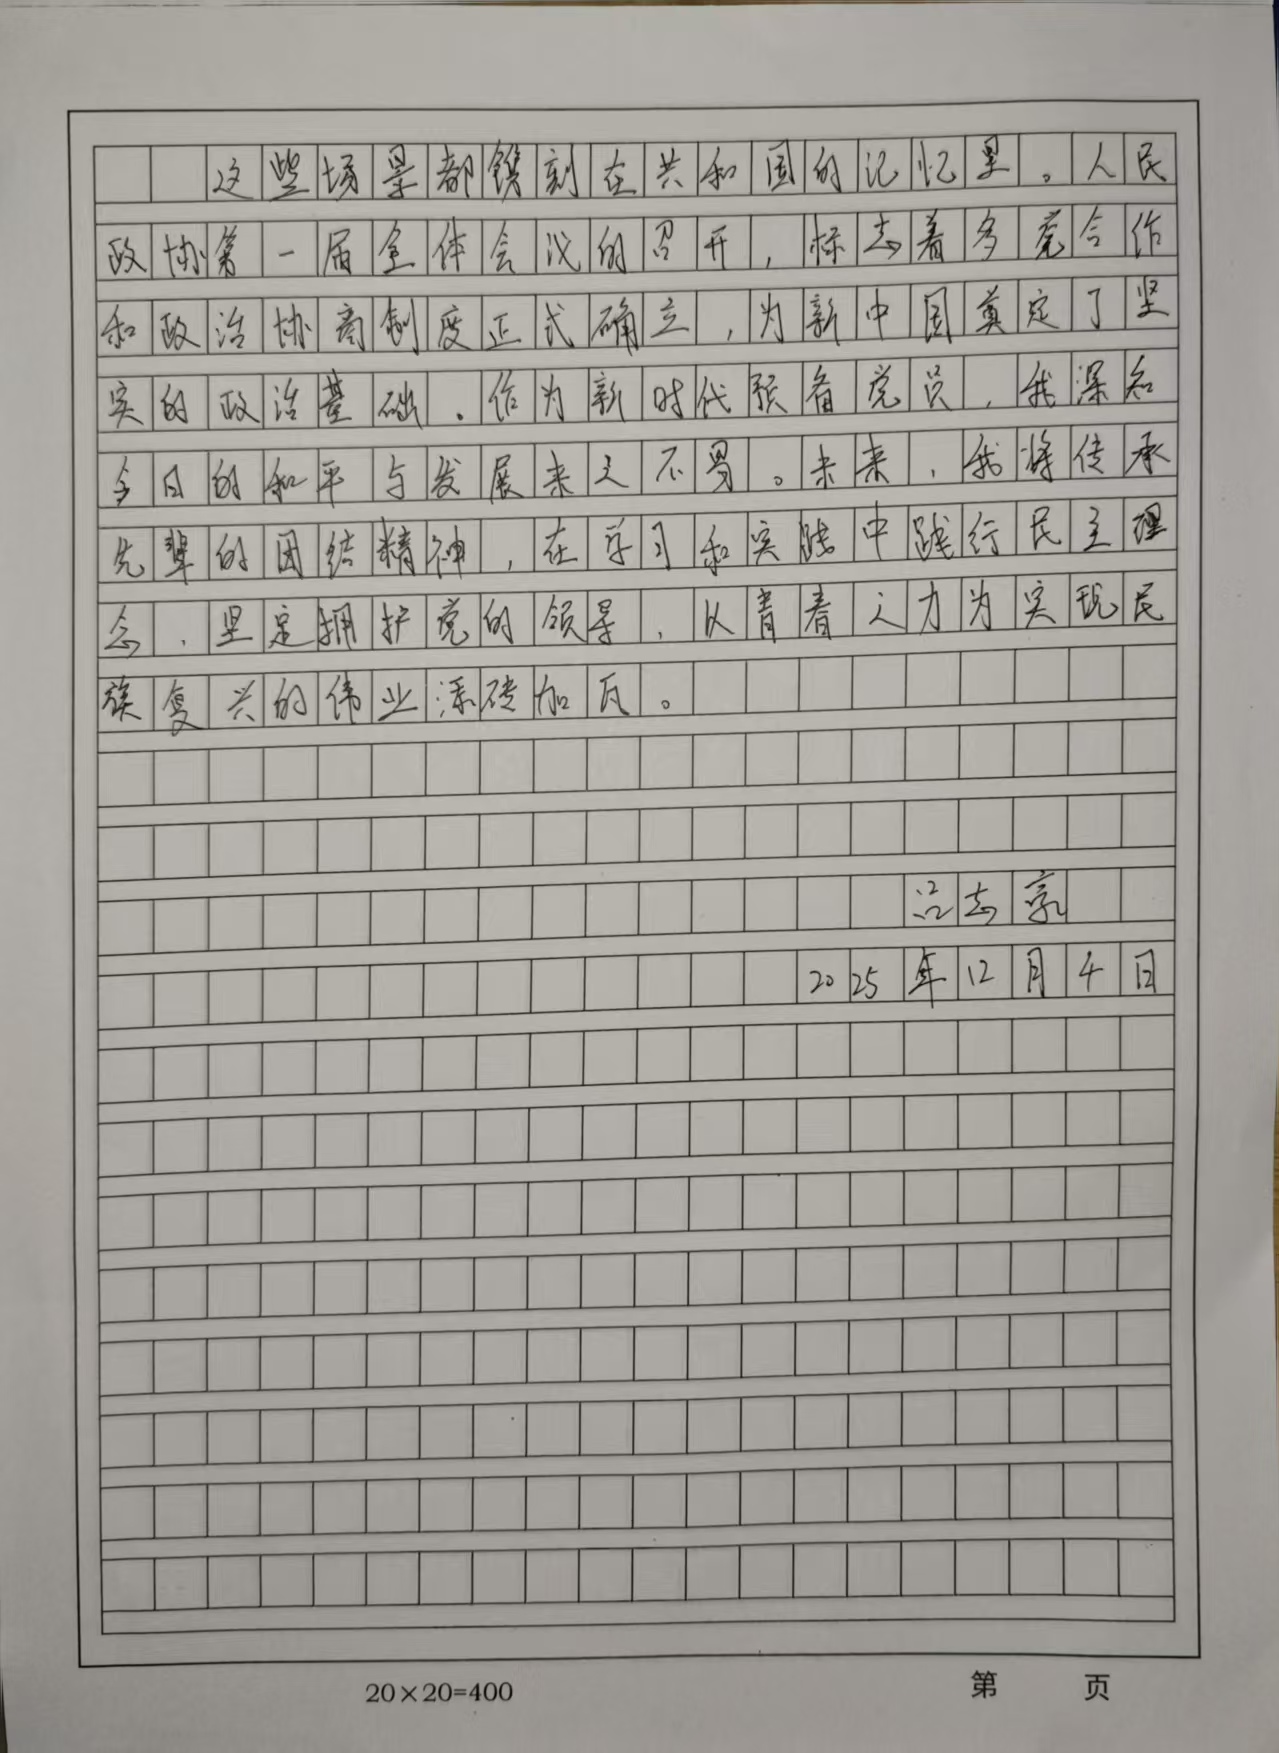 这些场景都镌刻在共和国的记忆里。人民
政协第一届全体会议的召开，标志着多党合作
和政治协商制度正式确立，为新中国奠定了坚
实的政治基础。作为新时代预备党员，我深知
今日的和平与发展来之不易。未来，我将传承
先辈的团结精神，在学习和实践中践行民主理
念，坚定拥护党的领导，以青春之力为实现民
族复兴的伟业添砖加瓦。
吕志
2025年12月4日
20×20=400
第 页